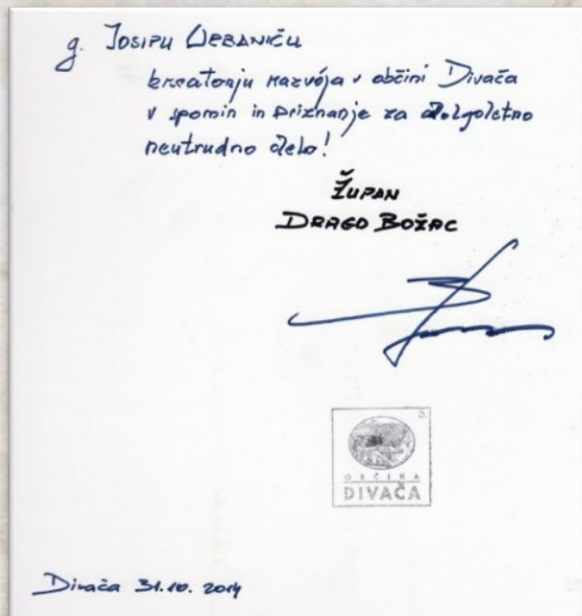 g. Josipu Urbaniču
kreatorju razvoja v občini Divača
v spomin in priznanje za dolgoletno
neutrudno delo!
Župan
Drago Božac
OBČINA
DIVAČA
Divača 31.10. 2014